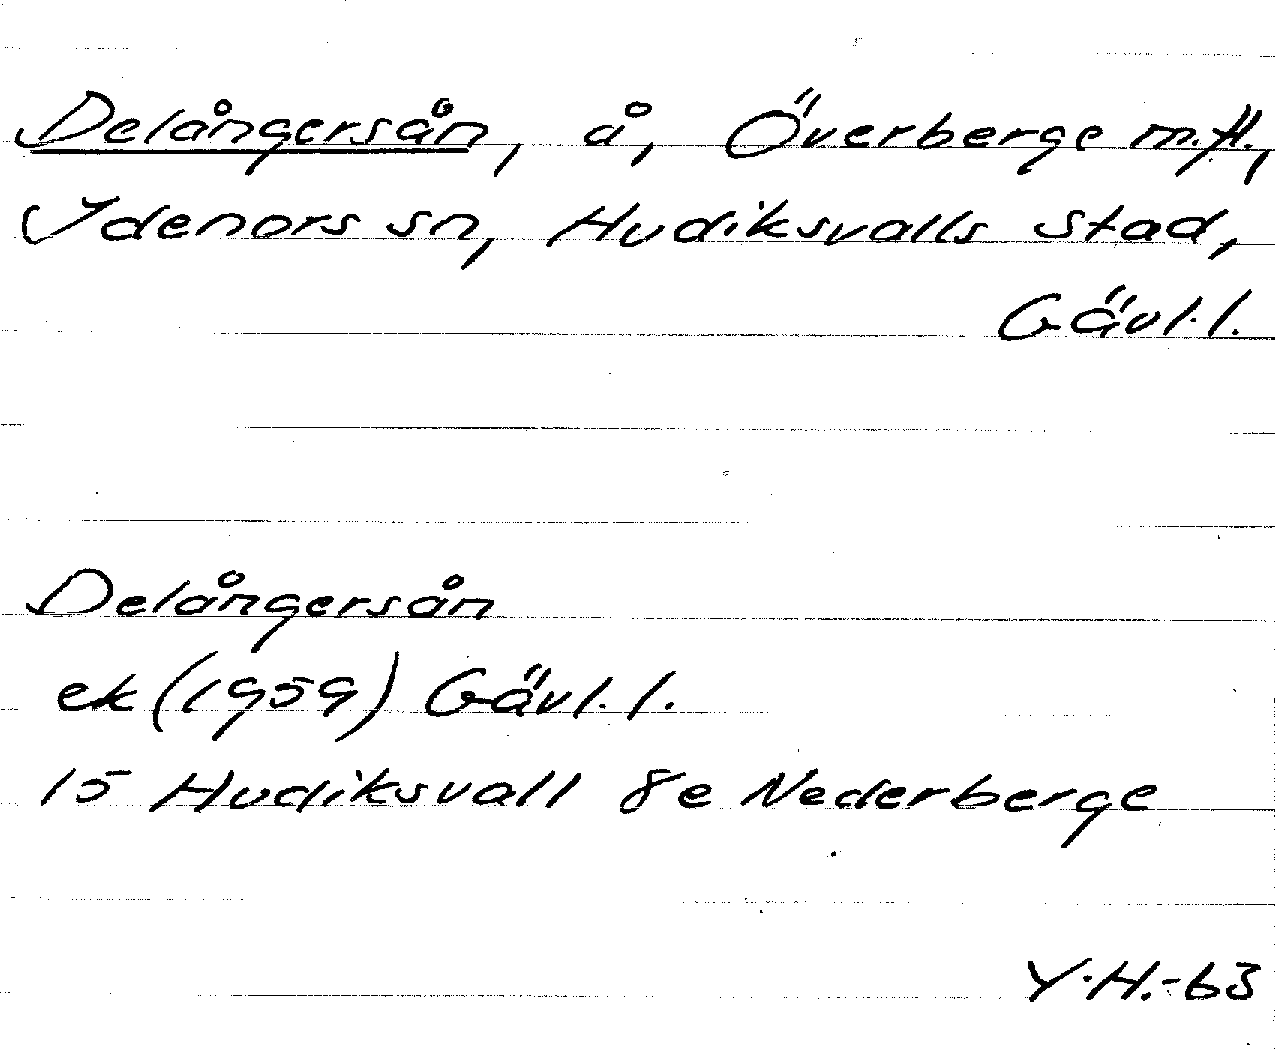 Delångersån, å, Överberge m.fl.,
Idenors sn, Hudiksvalls stad,
Gävl. l.
Delångersån
ek (1959) Gävl. l.
15 Hudiksvall 8e Nederberge
Y.H.-63